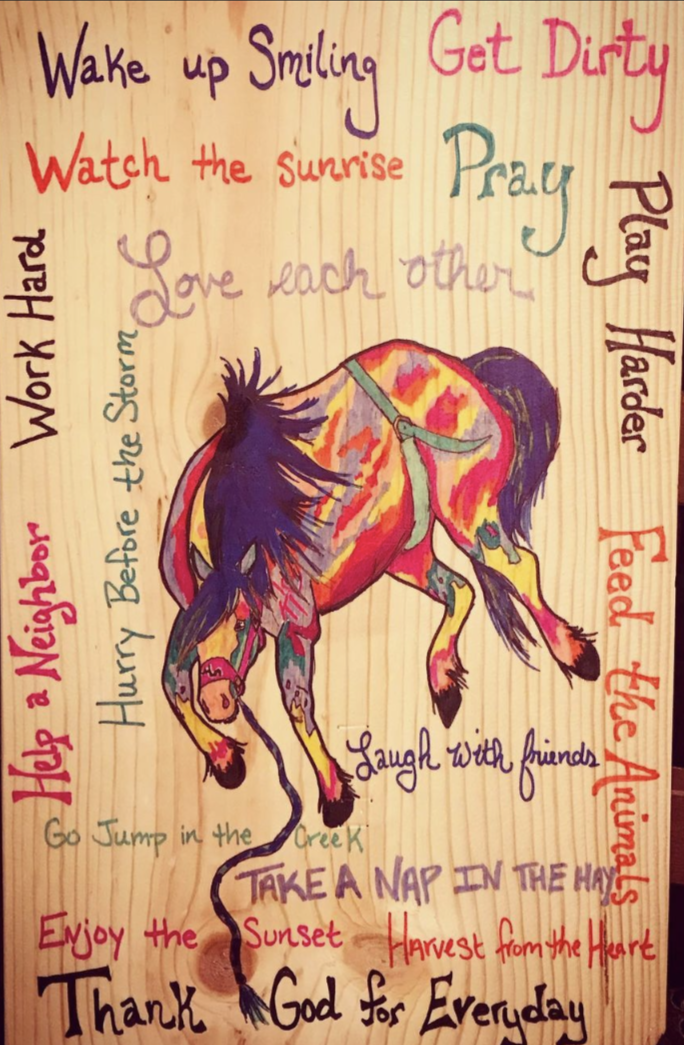 Wake up Smiling
Get Dirty
Watch the sunrise
Pray
Play Harder
Work Hard
Love each other
Hurry Before the Storm
Help a Neighbor
Feed the Animals
Laugh with friends
Go Jump in the Creek
TAKE A NAP IN THE HAY
Enjoy the Sunset
Harvest from the Heart
Thank God for Everyday